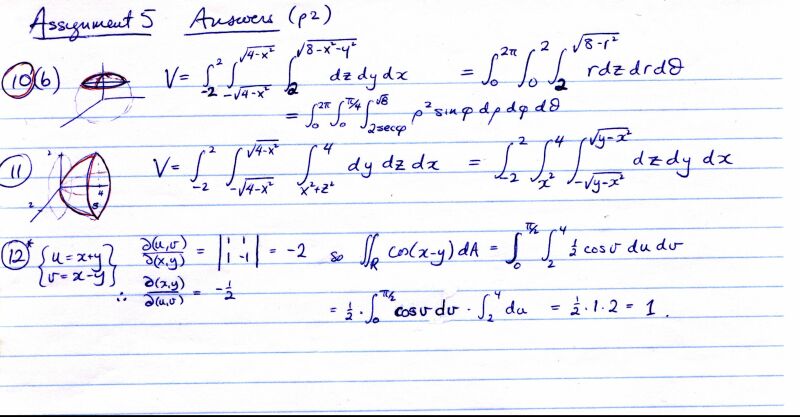 Assignment 5 Answers (p2)
10(b) V = ∫_{-2}^{2} ∫_{-√(4-x²)}^{√(4-x²)} ∫_{2}^{√(8-x²-y²)} dz dy dx = ∫_{0}^{2π} ∫_{0}^{2} ∫_{2}^{√(8-r²)} r dz dr dθ
= ∫_{0}^{2π} ∫_{0}^{π/4} ∫_{2secφ}^{√8} ρ² sinφ dρ dφ dθ
11 V = ∫_{-2}^{2} ∫_{-√(4-x²)}^{√(4-x²)} ∫_{x²+z²}^{4} dy dz dx = ∫_{-2}^{2} ∫_{x²}^{4} ∫_{-√(y-x²)}^{√(y-x²)} dz dy dx
2 4 2
12* {u = x+y, v = x-y} ∂(u,v)/∂(x,y) = |1 1; 1 -1| = -2 so ∬_R cos(x-y) dA = ∫_{0}^{π/2} ∫_{2}^{4} ½ cos v du dv
∴ ∂(x,y)/∂(u,v) = -½
= ½ · ∫_{0}^{π/2} cos v dv · ∫_{2}^{4} du = ½ · 1 · 2 = 1.